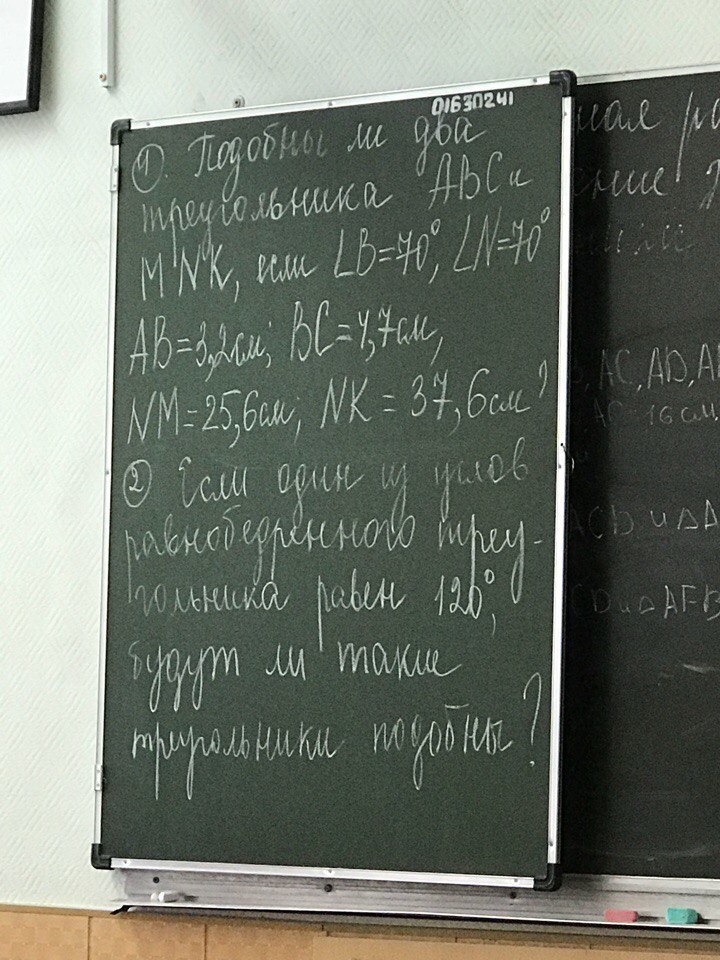 01630241
1. Подобны ли два
треугольника ABC и
MNK, если ∠B=70°, ∠N=70°
AB=3,2см; BC=4,7см,
NM=25,6см; NK=37,6см?
2 Если один из углов
равнобедренного треу-
гольника равен 120°,
будут ли такие
треугольники подобны?
AC, AD,
16 см,